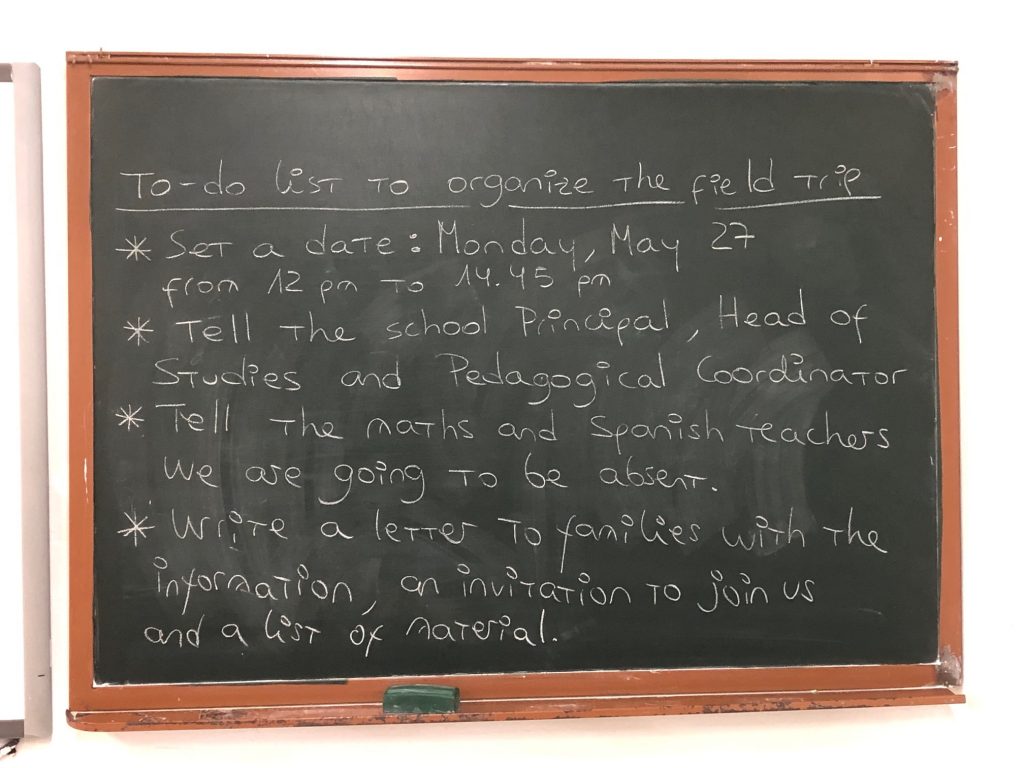 To-do list to organize the field trip
* Set a date: Monday, May 27
from 12 pm to 14.45 pm
* Tell the school Principal, Head of
Studies and Pedagogical Coordinator
* Tell the maths and Spanish teachers
we are going to be absent.
* Write a letter to families with the
information, an invitation to join us
and a list of material.